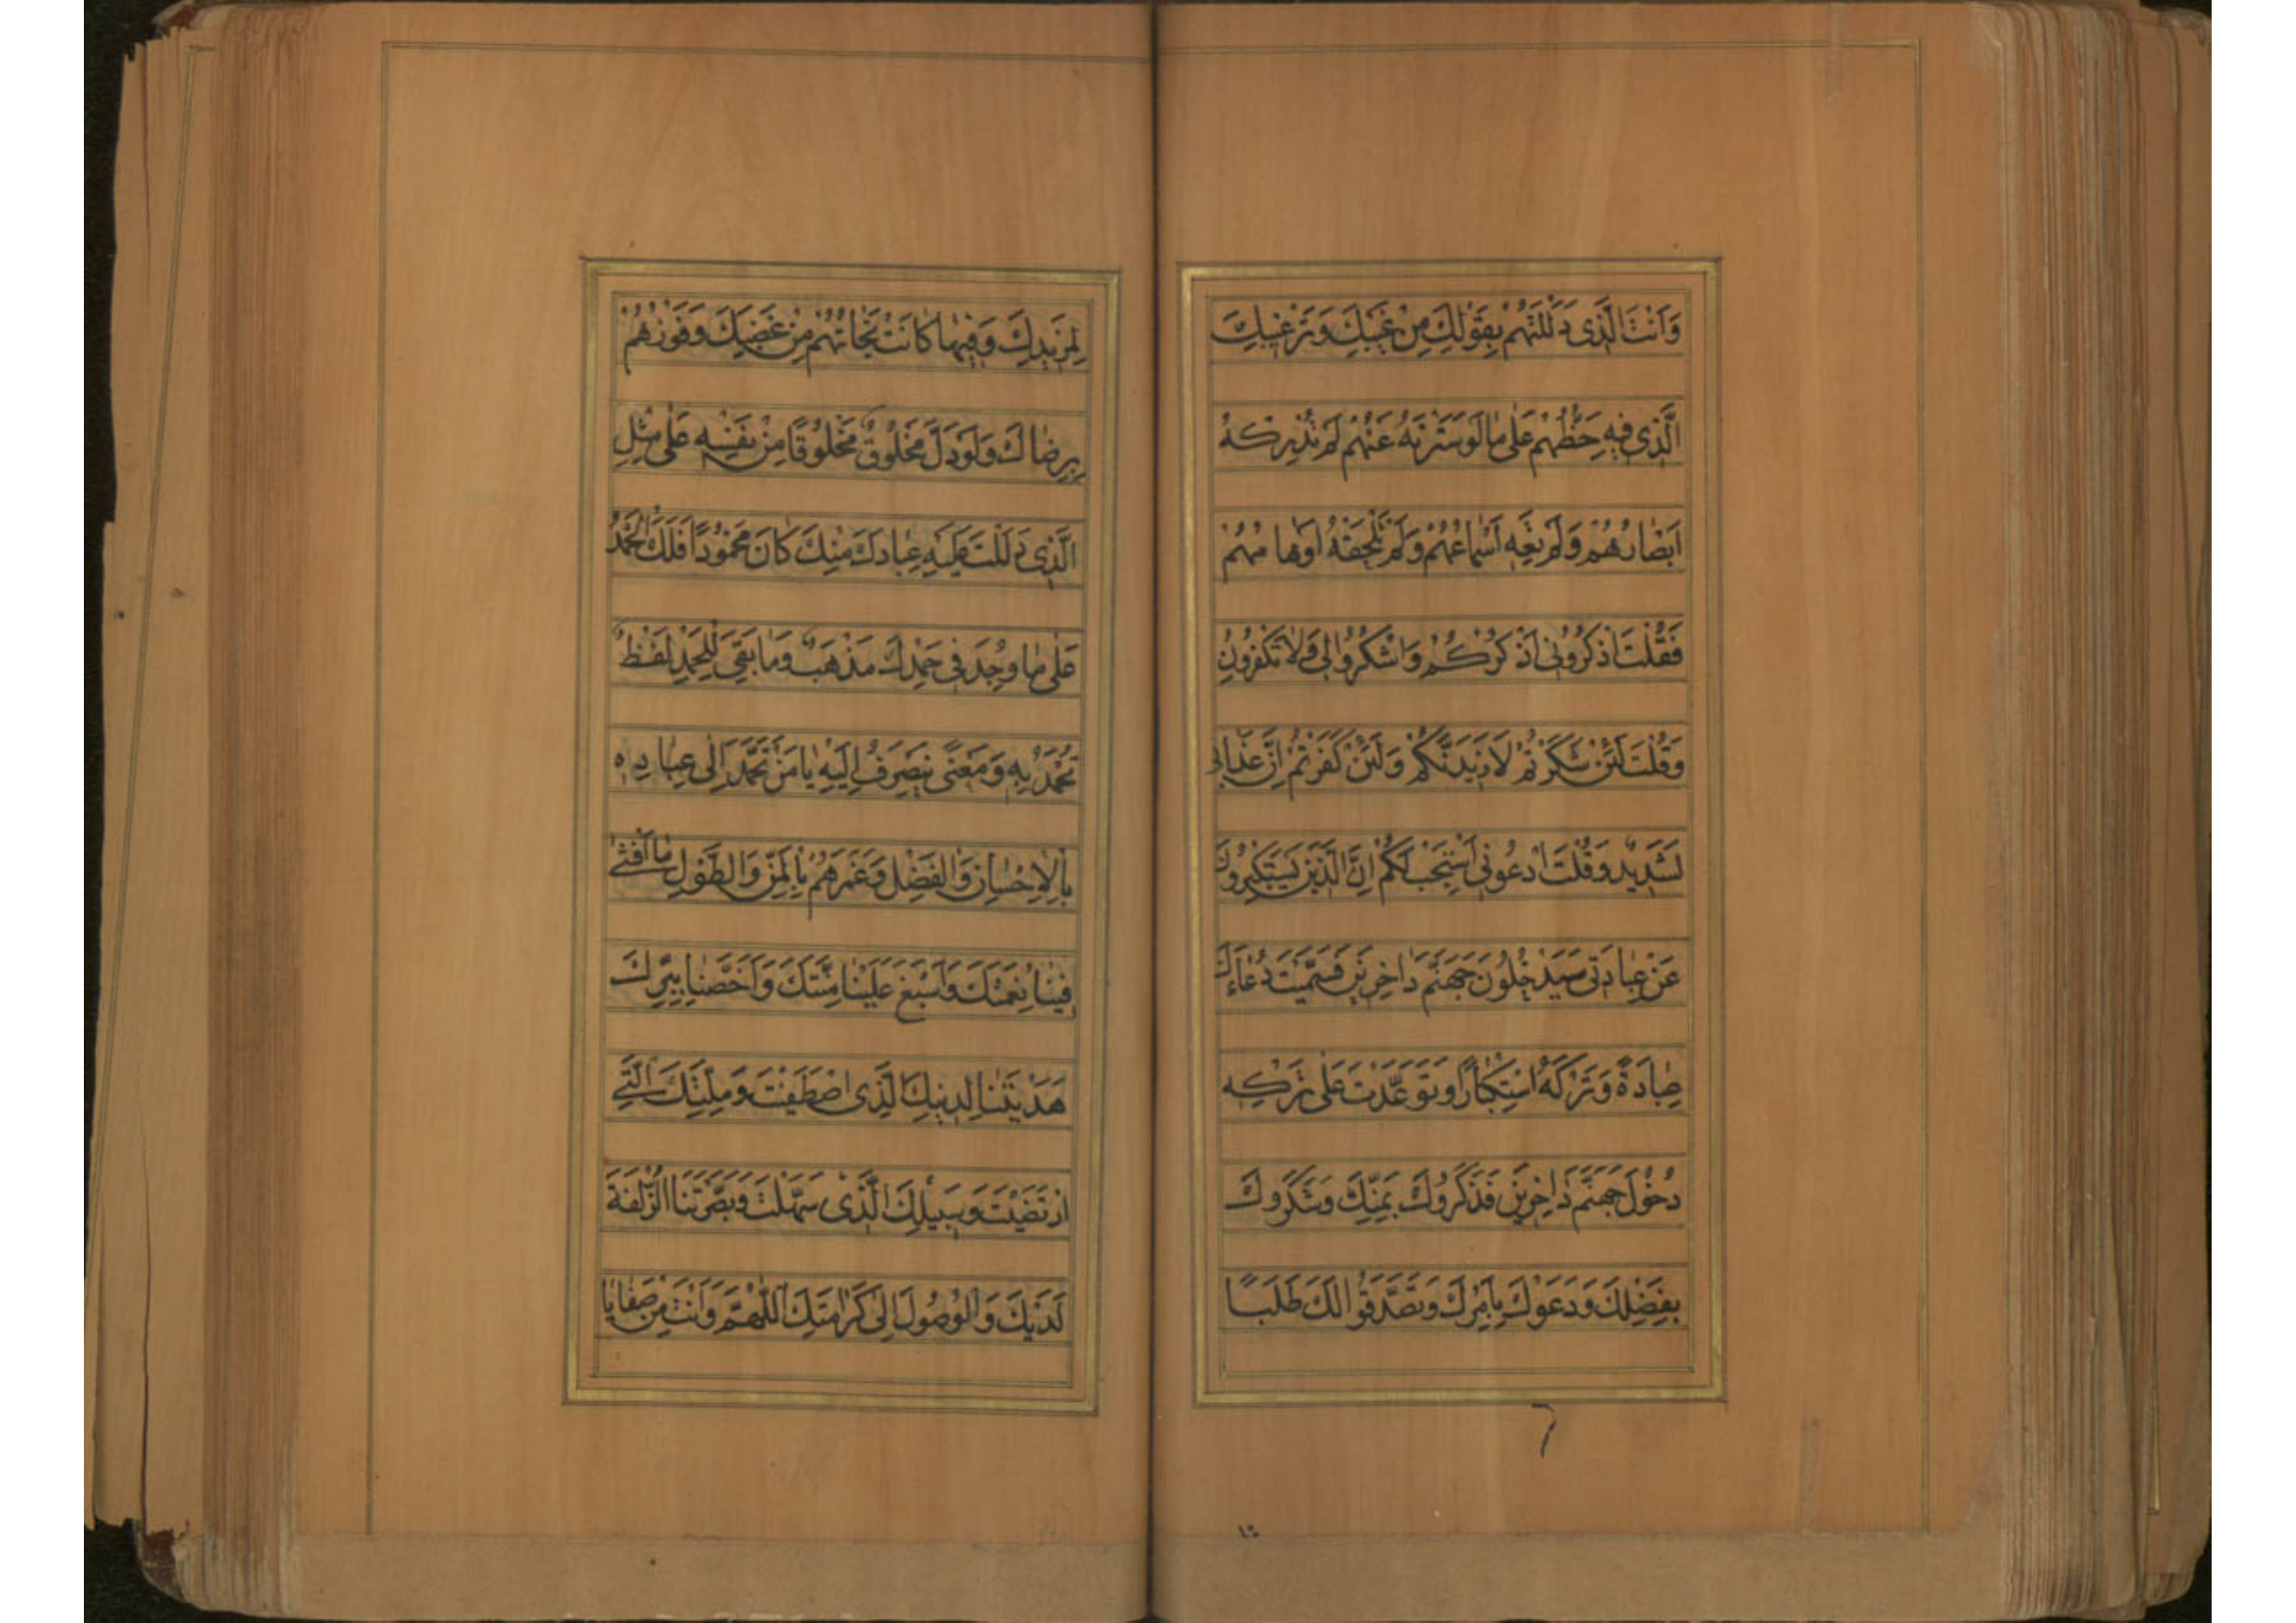 وَاَنْتَ الَّذى دَلَلْتَهُمْ بِقَوْلِكَ مِنْ غَيْبِكَ وَتَرْغيبِكَ
الَّذى فيهِ حَظُّهُمْ عَلى ما لَوْ سَتَرْتَهُ عَنْهُمْ لَمْ تُدْرِكْهُ
اَبْصارُهُمْ وَلَمْ تَعِهِ اَسْماعُهُمْ وَلَمْ تَلْحَقْهُ اَوْهامُهُمْ
فَقُلْتَ اذْكُرُونى اَذْكُرْكُمْ وَاشْكُرُوا لى وَلا تَكْفُرُونِ
وَقُلْتَ لَئِنْ شَكَرْتُمْ لَاَزيدَنَّكُمْ وَلَئِنْ كَفَرْتُمْ اِنَّ عَذابى
لَشَديدٌ وَقُلْتَ ادْعُونى اَسْتَجِبْ لَكُمْ اِنَّ الَّذينَ يَسْتَكْبِرُونَ
عَنْ عِبادَتى سَيَدْخُلُونَ جَهَنَّمَ داخِرينَ فَسَمَّيْتَ دُعاءَكَ
عِبادَةً وَتَرْكَهُ اسْتِكْبارًا وَتَوَعَّدْتَ عَلى تَرْكِهِ
دُخُولَ جَهَنَّمَ داخِرينَ فَذَكَرُوكَ بِمَنِّكَ وَشَكَرُوكَ
بِفَضْلِكَ وَدَعَوْكَ بِاَمْرِكَ وَتَصَدَّقُوا لَكَ طَلَبًا
٦
١٥
لِمَزيدِكَ وَفيها كانَتْ نَجاتُهُمْ مِنْ غَضَبِكَ وَفَوْزُهُمْ
بِرِضاكَ وَلَوْ دَلَّ مَخْلُوقٌ مَخْلُوقًا مِنْ نَفْسِهِ عَلى مِثْلِ
الَّذى دَلَلْتَ عَلَيْهِ عِبادَكَ مِنْكَ كانَ مَحْمُودًا فَلَكَ الْحَمْدُ
عَلى ما وُجِدَ فى حَمْدِكَ مَذْهَبٌ وَما بَقِىَ لِلْحَمْدِ لَفْظٌ
تُحْمَدُ بِهِ وَمَعْنًى يَنْصَرِفُ اِلَيْهِ يا مَنْ تَحَمَّدَ اِلى عِبادِهِ
بِالْاِحْسانِ وَالْفَضْلِ وَغَمَرَهُمْ بِالْمَنِّ وَالطَّوْلِ ما اَفْشى
فينا نِعْمَتَكَ وَاَسْبَغَ عَلَيْنا مِنَّتَكَ وَاَخَصَّنا بِبِرِّكَ
هَدَيْتَنا لِدينِكَ الَّذى اصْطَفَيْتَ وَمِلَّتِكَ الَّتى
ارْتَضَيْتَ وَسَبيلِكَ الَّذى سَهَّلْتَ وَبَصَّرْتَنَا الزُّلْفَةَ
لَدَيْكَ وَالْوُصُولَ اِلى كَرامَتِكَ اَللّهُمَّ وَاَنْتَ مِنْ صَفايا